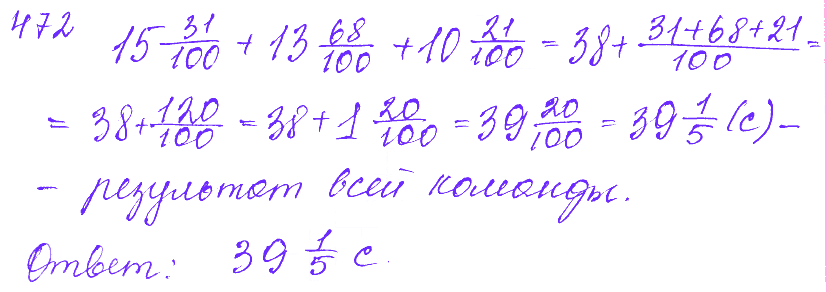 472 15 31/100 + 13 68/100 + 10 21/100 = 38 + (31+68+21)/100 =
= 38 + 120/100 = 38 + 1 20/100 = 39 20/100 = 39 1/5 (с) –
– результат всей команды.
Ответ: 39 1/5 с.